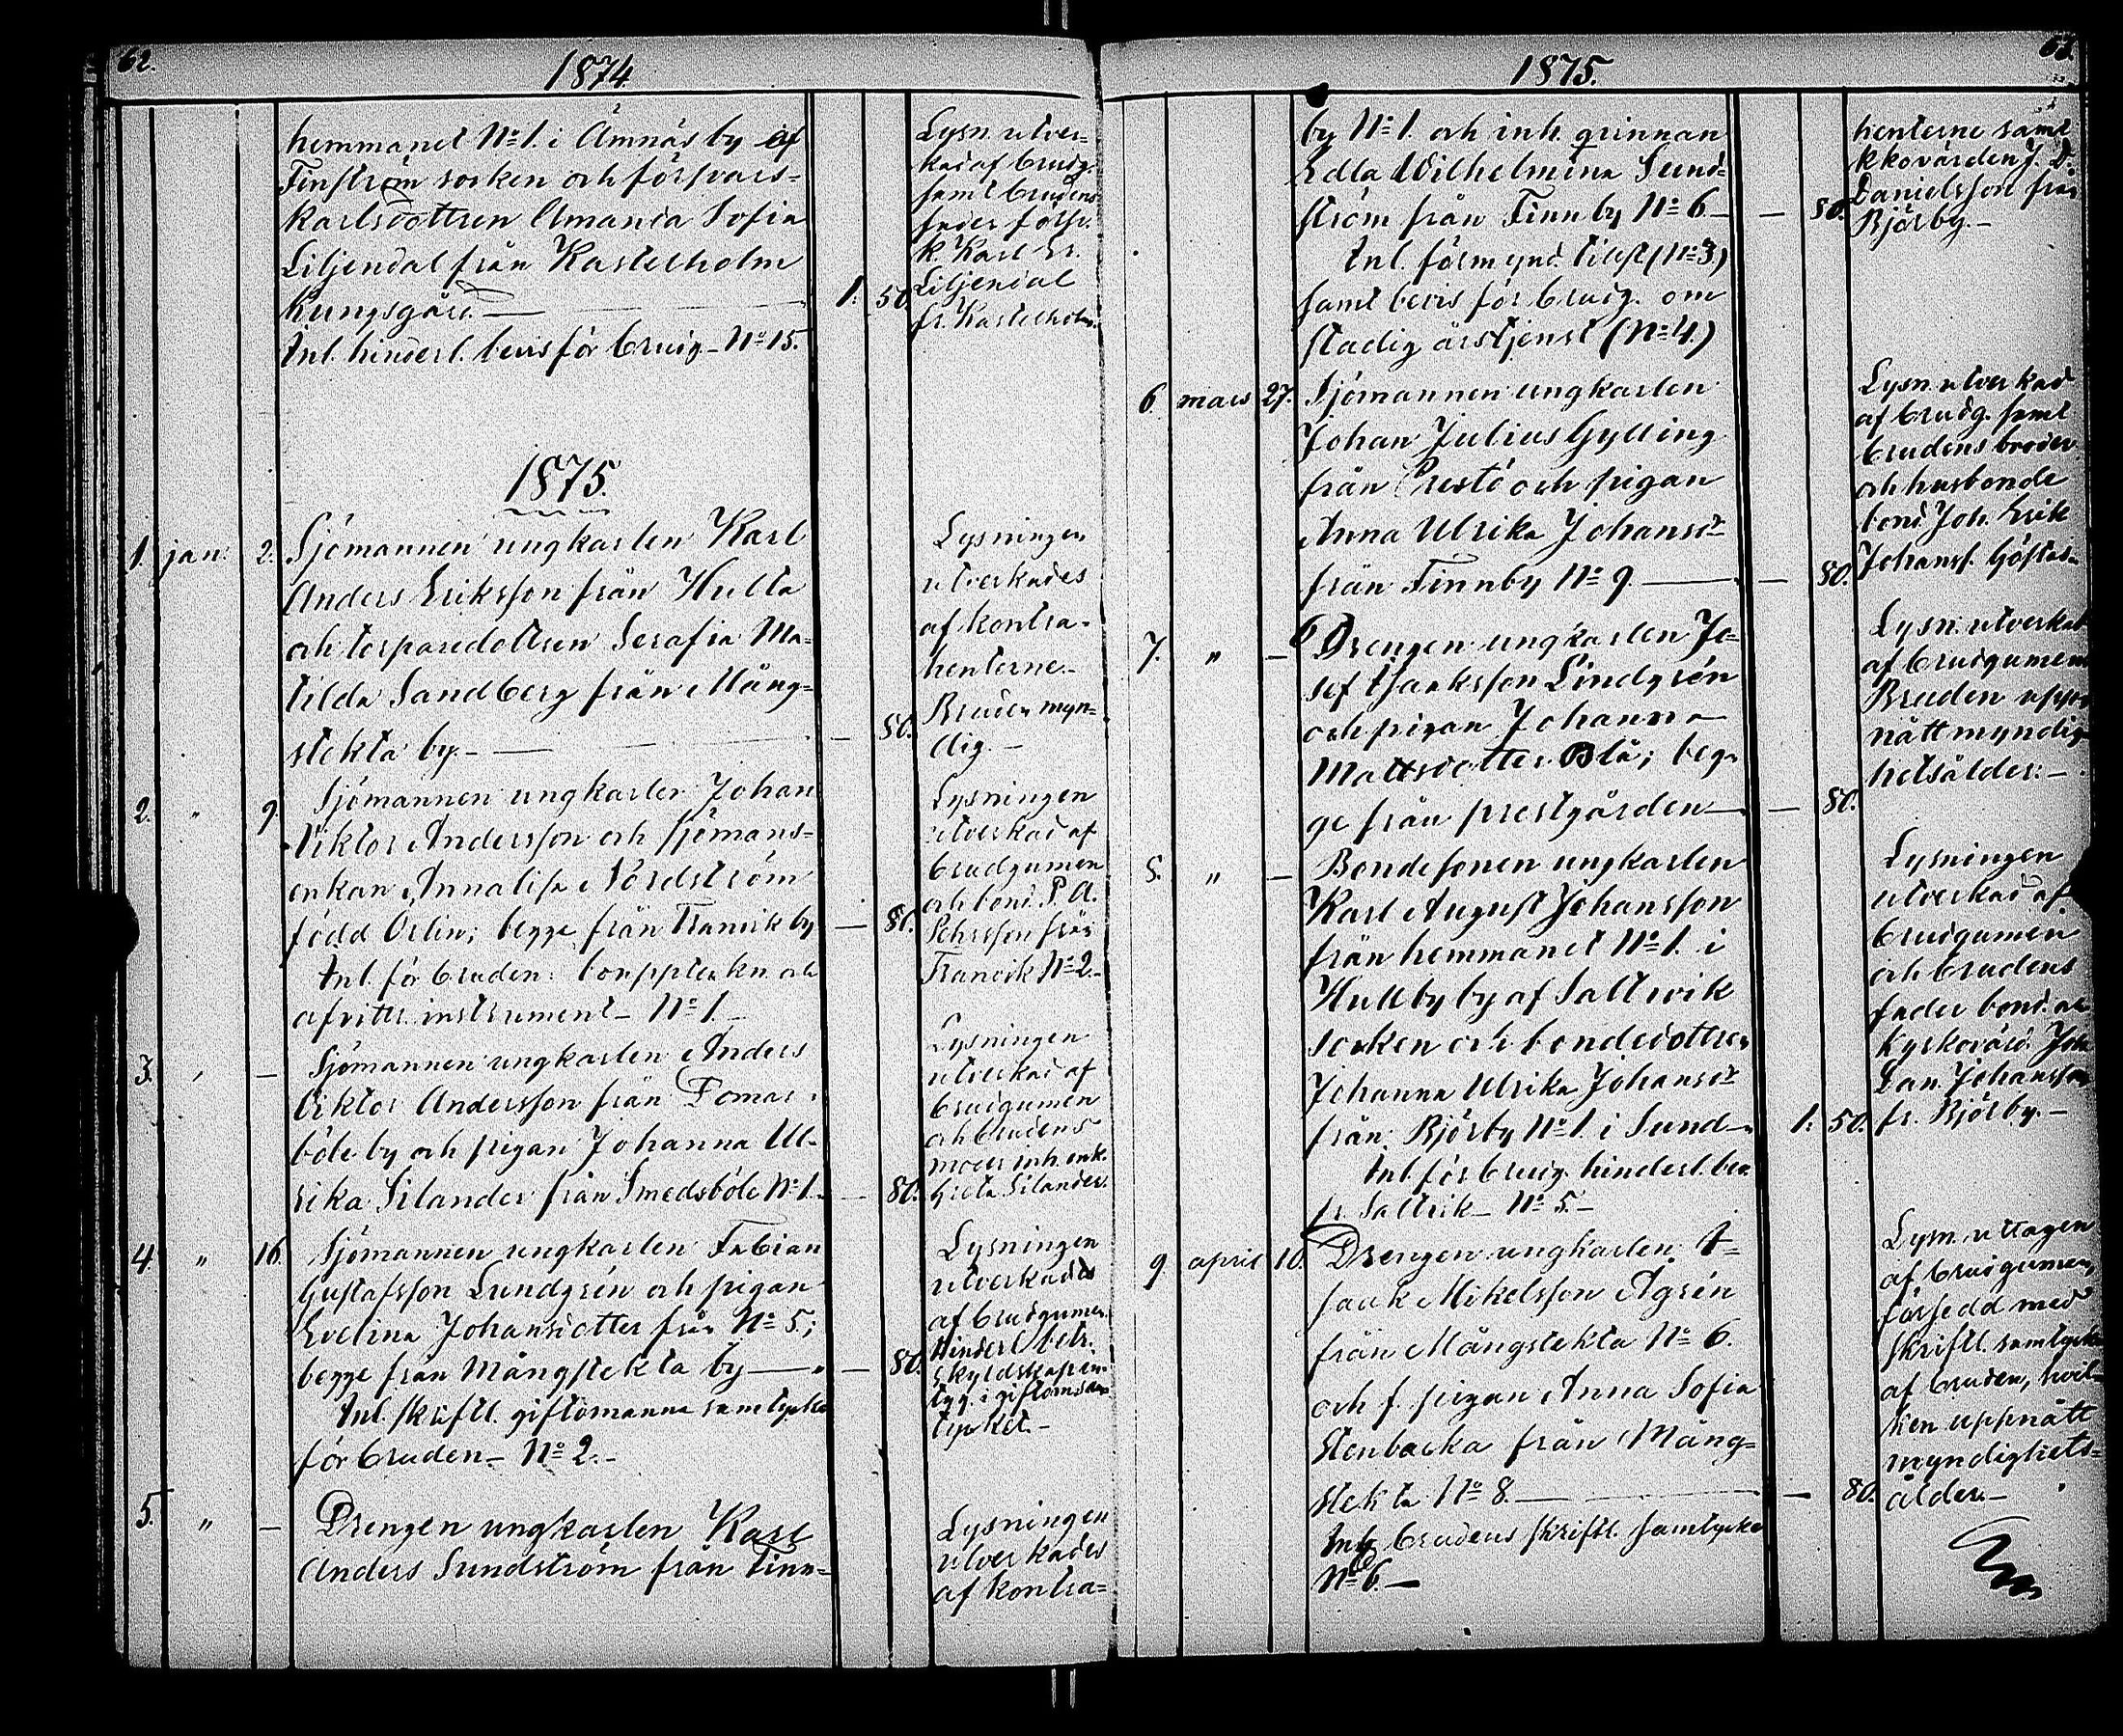 62.
1874.
hemmanet No 1. i Ämnäs by af
Finström socken och försvars-
karlsdottren Amanda Sofia
Liljendal från Kastelholm
Kungsgård. — 1. 50.
Inl. hinderl. bevis för brudg. No 15.
Lysn. utver-
kad af brudg.
samt brudens
fader försv.
k. Karl Er.
Liljendal
fr. Kastelholm.
1875.
1. jan. 2. Sjömannen ungkarlen Karl
Anders Eriksson från Hulta
och torparedottren Serafia Ma-
tilda Sandberg från Mång-
stekta by. — — 80.
Lysningen
utverkades
af kontra-
henterne.
Bruden myn-
dig. —
2. " 9. Sjömannen ungkarlen Johan
Viktor Andersson och sjömans-
enkan Annalisa Nordström
född Orlin; begge från Tranvik by — 80.
Inl. för bruden: bouppteckn. och
afvittr. instrument — No 1. —
Lysningen
utverkad af
brudgumen
och bond. P. A.
Pehrsson från
Tranvik No 2. —
3. " — Sjömannen ungkarlen Anders
Viktor Andersson från Tomar-
böle by och pigan Johanna Ul-
rika Silander från Smedsböle No 1. — 80.
Lysningen
utverkad af
brudgumen
och brudens
moder inh. enk.
Greta Silander.
4. " 16. Sjömannen ungkarlen Fabian
Gustafsson Lundgrén och pigan
Evelina Johansdotter från No 5;
begge från Mångstekta by — — 80.
Inl. skriftl. giftomanna samtycke
för bruden — No 2. —
Lysningen
utverkades
af brudgumen.
Hinderl. betr.
skyldskapen
tyg. i giftom. sam-
tycket. —
5. " — Drengen ungkarlen Karl
Anders Sundström från Finn-
Lysningen
utverkades
af kontra-
63.
1875.
by No 1. och inh. qvinnan
Edla Wilhelmina Sund-
ström från Finnby No 6. — 80.
Inl. förmynd. tillst. (No 3)
samt bevis för brudg. om
stadig årstjenst (No 4.)
henterne samt
kkovärden J. D.
Danielsson från
Björby. —
6. mars 27. Sjömannen ungkarlen
Johan Julius Gylling
från Prestö och pigan
Anna Ulrika Johansdr
från Finnby No 9. — — 80.
Lysn. utverkad
af brudg. samt
brudens broder
och husbonde
bond. Joh. Erik
Johanss. Göstas.
7. " — Drengen ungkarlen Jo-
sef Isaksson Lindgrén
och pigan Johanna
Mattsdotter Blå; beg-
ge från prestgården — — 80.
Lysn. utverkad
af brudgumen
Bruden upp-
nått myndig-
hetsålder. —
8. " — Bondesonen ungkarlen
Karl August Johansson
från hemmanet No 1. i
Hullby by af Saltvik
socken och bondedottren
Johanna Ulrika Johansdr
från Björby No 1. i Sund — 1. 50.
Inl. för brudg. hinderl. bev.
fr. Saltvik — No 5. —
Lysningen
utverkad af
brudgumen
och brudens
fader bond. och
kyrkovärd. Joh.
Dan. Johansson
fr. Björby. —
9. april 10. Drengen ungkarlen I-
saak Mikelsson Ågrén
från Mångstekta No 6.
och f. pigan Anna Sofia
Stenbacka från Mång-
stekta No 8. — — 80.
Inl. brudens skriftl. samtycke
No 6. —
Lysn. uttagen
af brudgumen,
försedd med
skriftl. samtycke
af bruden, hvil-
ken uppnått
myndighets-
ålder. —